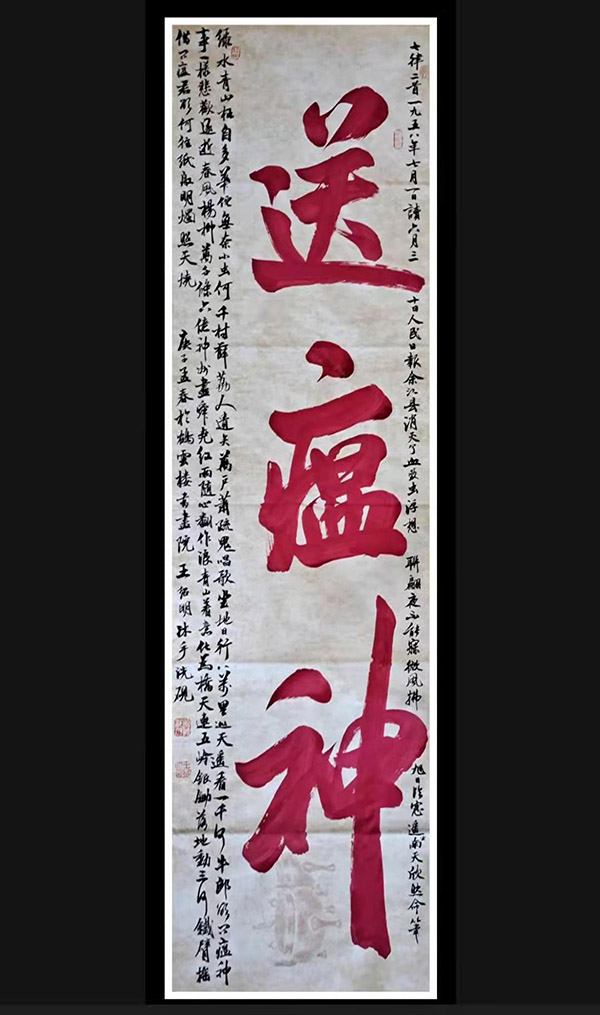 七律二首一九五八年七月一日讀六月三十日人民日報余江县消灭了血吸虫浮想聯翩夜不能寐微風拂旭日临窓遥南天欣然命筆
送瘟神
绿水青山枉自多華佗無奈小虫何千村薜荔人遺矢萬户蕭疏鬼唱歌坐地日行八萬里巡天遥看一千河牛郎欲问瘟神
事一樣悲歡逐逝春風楊柳萬千條六億神州盡舜尧红雨随心翻作浪青山着意化為橋天连五岭银锄落地動三河鐵臂摇
借问瘟君欲何往纸船明燭照天燒庚子孟春於鶴雲楼书畫院王紹明沐手洗硯